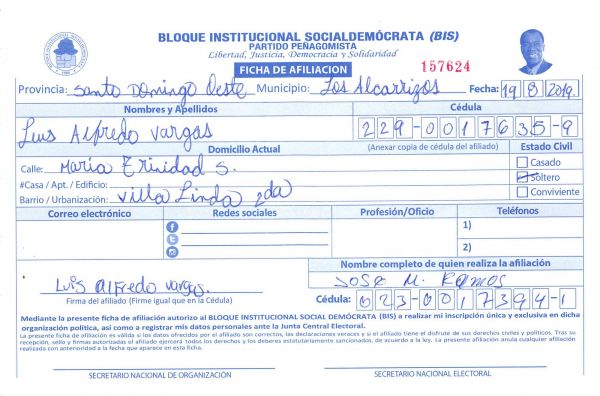 BLOQUE INSTITUCIONAL SOCIALDEMÓCRATA (BIS)
PARTIDO PEÑAGOMISTA
Libertad, Justicia, Democracia y Solidaridad
FICHA DE AFILIACION 157624
Provincia: Santo Domingo Oeste Municipio: Los Alcarrizos Fecha: 19/8/2019
Nombres y Apellidos Cédula
Luis Alfredo Vargas 229-0017635-9
Domicilio Actual (Anexar copia de cédula del afiliado) Estado Civil
Calle: María Trinidad S. Casado
#Casa / Apt. / Edificio: Soltero
Barrio / Urbanización: Villa Linda 2da Conviviente
Correo electrónico Redes sociales Profesión/Oficio Teléfonos
1)
2)
Nombre completo de quien realiza la afiliación
Luis Alfredo Vargas. José M. Ramos
Firma del afiliado (Firme igual que en la Cédula) Cédula: 023-0017394-1
Mediante la presente ficha de afiliación autorizo al BLOQUE INSTITUCIONAL SOCIAL DEMÓCRATA (BIS) a realizar mi inscripción única y exclusiva en dicha
organización política, así como a registrar mis datos personales ante la Junta Central Electoral.
La presente ficha de afiliación es válida si los datos ofrecidos por el afiliado son correctos, las declaraciones veraces y si el afiliado tiene el disfrute de sus derechos civiles y políticos. Tras su
recepción, sello y firmas autorizadas el afiliado ejercerá todos los derechos y los deberes estatutariamente sancionados, de acuerdo a la ley. La presente afiliación anula cualquier afiliación
realizada con anterioridad a la fecha que aparece en esta ficha.
SECRETARIO NACIONAL DE ORGANIZACIÓN SECRETARIO NACIONAL ELECTORAL